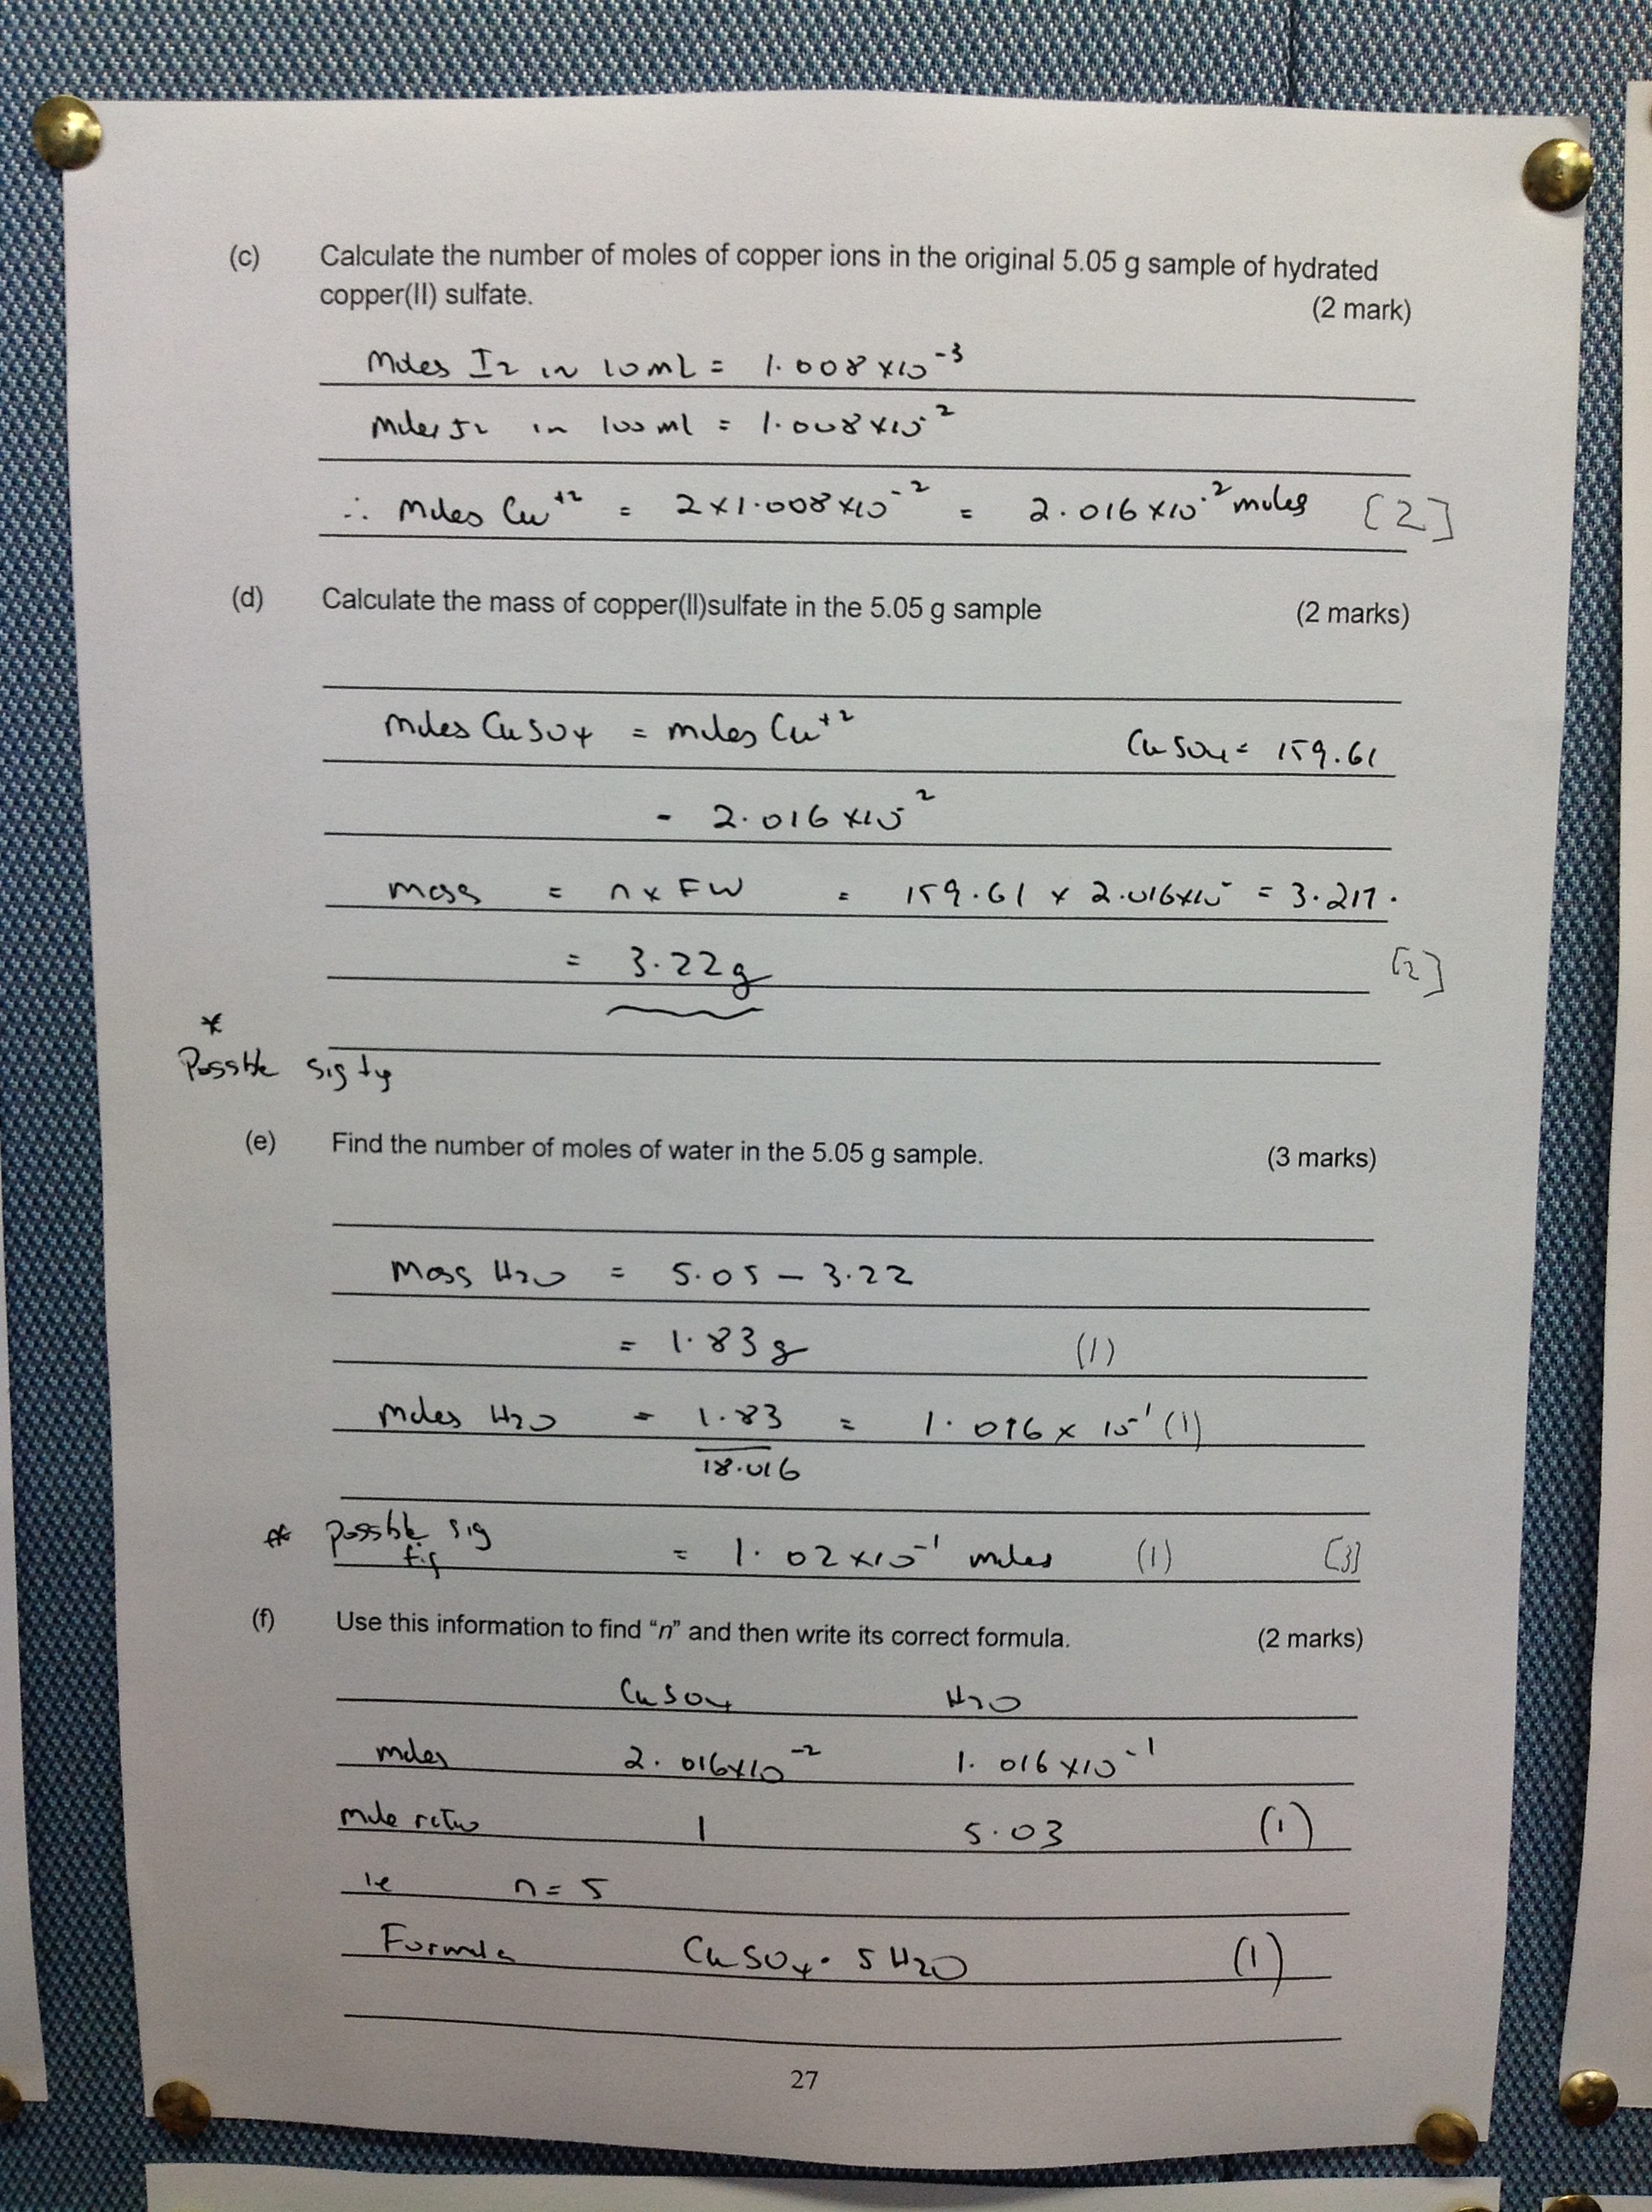 (c) Calculate the number of moles of copper ions in the original 5.05 g sample of hydrated
copper(II) sulfate. (2 mark)
Moles I2 in 10mL = 1.008 x10⁻³
Moles I2 in 100ml = 1.008 x10⁻²
∴ Moles Cu⁺² = 2 x 1.008 x10⁻² = 2.016 x10⁻² moles [2]
(d) Calculate the mass of copper(II)sulfate in the 5.05 g sample (2 marks)
Moles CuSO4 = moles Cu⁺² CuSO4 = 159.61
= 2.016 x10⁻²
mass = n x FW = 159.61 x 2.016x10⁻ = 3.217.
= 3.22g [2]
*
Possble sig fig
(e) Find the number of moles of water in the 5.05 g sample. (3 marks)
Mass H2O = 5.05 – 3.22
= 1.83 g (1)
Moles H2O = 1.83 = 1.016 x 10⁻¹ (1)
18.016
* possble sig
fig = 1.02 x10⁻¹ moles (1) [3]
(f) Use this information to find “n” and then write its correct formula. (2 marks)
CuSO4 H2O
moles 2.016x10⁻² 1.016 x10⁻¹
mole ratio 1 5.03 (1)
ie n = 5
Formula CuSO4. 5H2O (1)
27